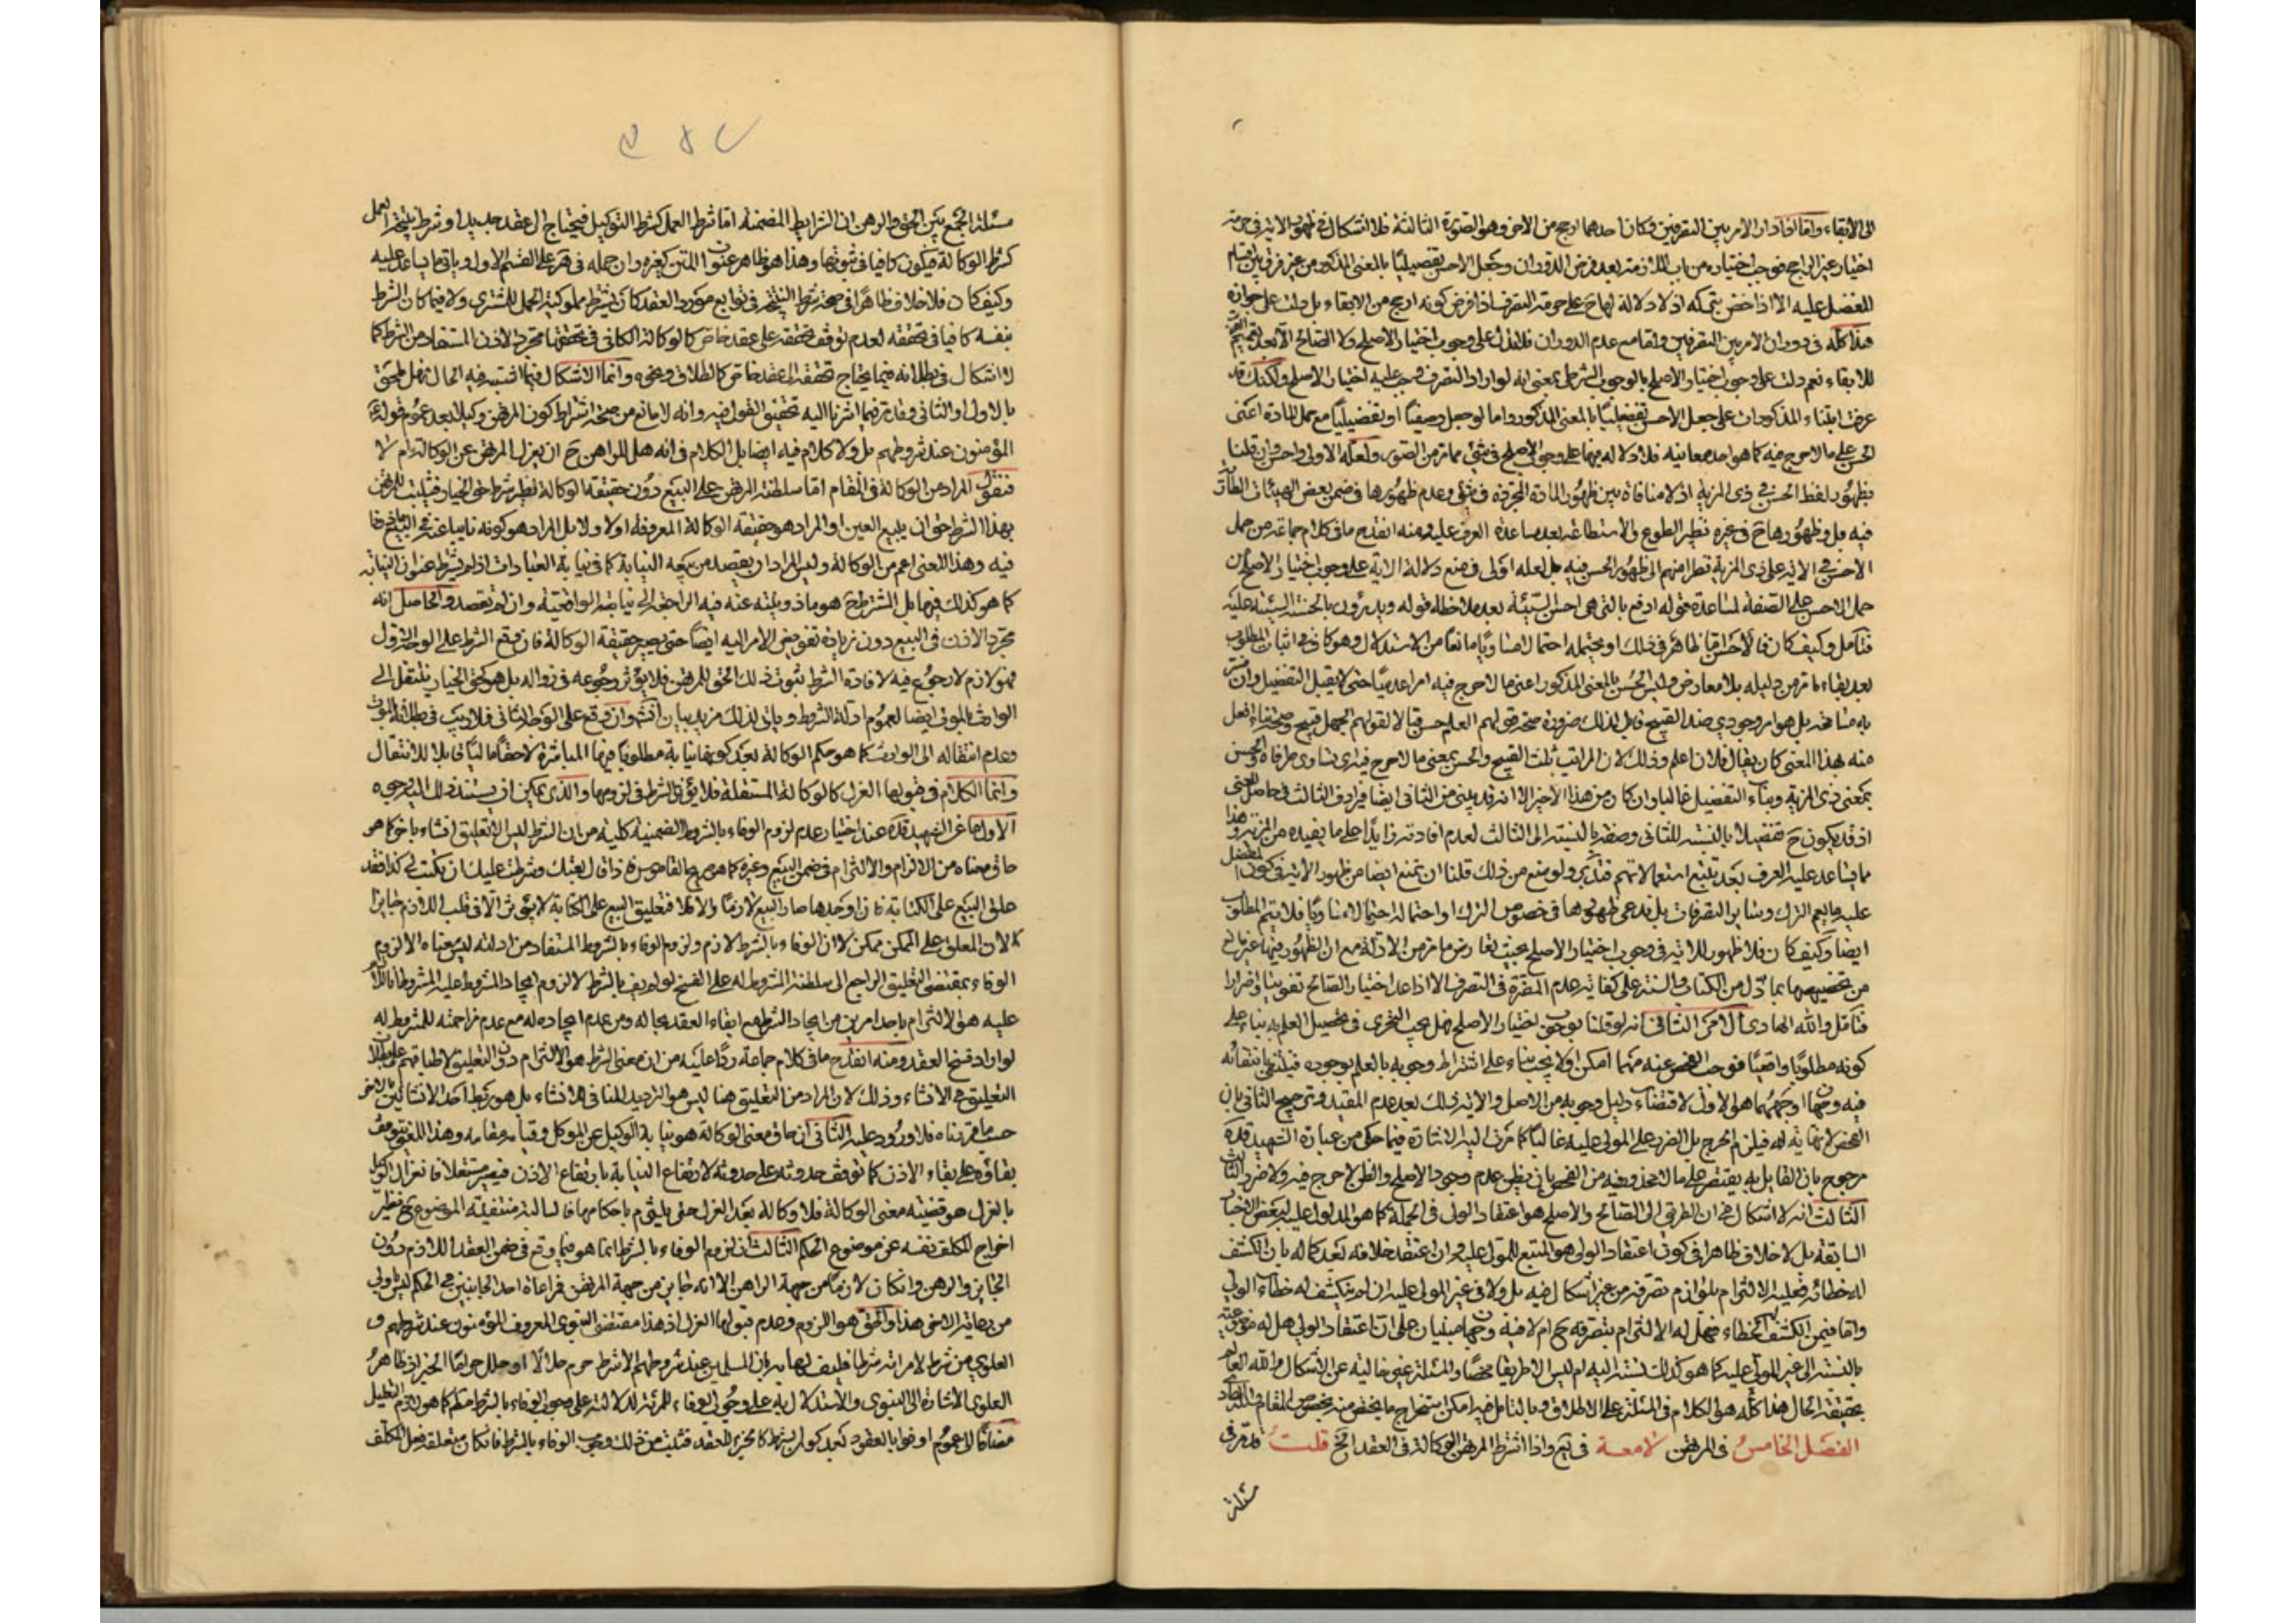 الى الابقاء واما اذا دار الامر بين التصرفين وكان احدهما ارجح من الاخر وهو الصورة الثالثة فلا اشكال في ظهور الاية في حرمة
اختيار غير الراجح فوجب اختياره من باب الملازمة بعد فرض الدوران وجعل الاحسن تفضيليا بالمعنى المذكور من غير فرق بين اقسام
المفضل عليه الا اذا خص بتركه اذ لا دلالة لها ح على حرمة التصرف اذا فرض كونه ارجح من الابقاء بل دلت على جوازه
هذا كله في دوران الامر بين التصرفين واما مع عدم الدوران فلا تدل على وجوب اختيار الاصلح ولا الصالح الا بعد
للابقاء نعم دلت على وجوب اختيار الاصلح بالوجوب الشرطي بمعنى انه لو اراد التصرف وجب عليه اختيار الاصلح ولكنك قد
عرفت ابتناء المذكورات على جعل الاحسن تفضيليا بالمعنى المذكور واما لو جعل وصفيا او تفضيليا مع حمل المادة اعنى
الحسن على ما لا حرج فيه كما هو احد معانيه فلا دلالة فيها على وجوب الاصلح في شئ مما مر من الصور ولعله الاولى واحسن وان قلنا
بظهور لفظ الحسن في ذى المزية اذ لا منافاة بين ظهور المادة المجردة في شئ وعدم ظهورها في ضمن بعض الهيئات الطارئة
فيه بل وظهورها ح في غيره نظير الطوع والاستطاعة بعد مساعدة العرف عليه ومنه انقدح ما في كلام جماعة من حمل
الاحسن في الاية على ذى المزية نظرا منهم الى ظهور الحسن فيه بل لعله اولى في منع دلالة الاية على وجوب اختيار الاصلح من
حمل الاحسن على الصفة لمساعدة قوله ادفع بالتى هى احسن السيئة بعد ملاحظة قوله ويدرؤن بالحسنة السيئة عليه
فتأمل وكيف كان فالاحسن اما ظاهر في ذلك او يحتمله احتمالا مساويا مانعا من الاستدلال وهو كاف في اثبات المطلوب
بعد بقاء ما مر من دليله بلا معارض وليس الحسن بالمعنى المذكور اعنى ما لا حرج فيه امرا عدميا حتى لا يقبل التفضيل وان
به مسامحة بل هو امر وجودى ضد القبيح قابل لذلك ضرورة صحة قولهم العلم حسن قبالا لقولهم الجهل قبيح وصحة بناء افعل
منه بهذا المعنى كان يقال فلان اعلم وذلك لان المراتب ثلث القبيح والحسن بمعنى ما لا حرج فيه اى تساوى طرفاه والحسن
بمعنى ذى المزية وبناء التفضيل غالبا وان كان من هذا الاخير الا انه قد يبنى من الثانى ايضا فيرادف الثالث في حاصل المعنى
اذ قد يكون ح تفضيلا بالنسبة للثانى وصفة بالنسبة الى الثالث لعدم افادته زايدا على ما يفيده من المزية وهذا
مما يساعد عليه العرف بعد تتبع استعمالاتهم فتدبر ولو منع من ذلك قلنا ان نمنع ايضا من ظهور الاية في كون المفضل
عليه ما يعم الترك وساير التصرفات بل ندعى ظهورها في خصوص الترك او احتماله احتمالا مساويا فلا يتم المطلوب
ايضا وكيف كان فلا ظهور للاية في وجوب اختيار الاصلح بحيث تعارض ما مر من الادلة مع ان الظهور فيها غير مانع
من تخصيصها بما دل من الكتاب والسنة على كفاية عدم المفسدة في التصرف الا اذا عد اختيار الصالح تفويتا واضرارا
فتأمل والله الهادى الامر الثانى انه لو قلنا بوجوب اختيار الاصلح فهل يجب التحرى في تحصيل العلم به بناء على
كونه مطلوبا واقعيا فوجب الفحص عنه مهما امكن او لا يجب بناء على اشتراط وجوبه بالعلم بوجوده فينتفى بانتفائه
فيه وجهان اوجههما هو الاول لاقتضاء دليل وجوبه من الاصل والاية ذلك بعد عدم المقيد وترجيح الثانى بان
الفحص لا نهاية له فيلزم الحرج بل الضرر على المولى عليه غالبا كما مرت اليه الاشارة فيما حكى من عبارة الشهيد قده
مرجوح بان القايل به يقتصر على ما لا محذور فيه من الفحص بان يظن عدم وجود الاصلح والظن لا حرج فيه ولا ضرر
الثالث انه لا اشكال في ان الطريق الى الصالح والاصلح هو اعتقاد الولى في الجملة كما هو المدلول عليه ببعض الاخبار
السابقة بل لا خلاف ظاهرا في كون اعتقاد الولى هو المتبع للمولى عليه وان اعتقد خلافه بعد كماله بان انكشف
له خطائه فعليه الالتزام بلوازم تصرفه من غير اشكال فيه بل ولا في غير المولى عليه ان لم ينكشف له خطاء الولى
واما فيمن انكشف له الخطاء فهل له الالتزام بتصرفه ح ام لا فيه وجهان مبنيان على ان اعتقاد الولى هل له موضوعية
بالنسبة الى غير المولى عليه كما هو كذلك بنسبته اليه ام ليس الا طريقا محضا والمسئلة غير خالية عن الاشكال والله العالم
بحقيقة الحال هذا كله هو الكلام في المسئلة على الاطلاق وبالتامل فيه امكن استخراج ما يختص منه بخصوص المقام
الفصل الخامس في المرتهن لامعة في يع واذا اشترط المرتهن الوكالة في العقد الخ قلت قد مر في
مسئلة
مسئلة الجمع بين الحق والرهن ان الشرايط المضمنة اما شرط العمل كشرط التوكيل فيحتاج الى عقد جديد او شرط نتيجة العمل
كشرط الوكالة فيكون كافيا في ثبوتها وهذا هو ظاهر عنوان المتن كغيره وان حمله في هر على القسم الاول وياتى ما يساعد عليه
وكيف كان فلا خلاف ظاهرا في صحة شرط النتيجة في توابع مورد العقد كان يشترط مملوكية الحمل للمشترى ولا فيما كان الشرط
بنفسه كافيا في تحققه لعدم توقف تحققه على عقد خاص كالوكالة الكافى في تحققها مجرد الاذن المستفاد من الشرط كما
لا اشكال في بطلانه فيما يحتاج تحققه الى عقد خاص كالطلاق ونحوه وانما الاشكال فيما اشتبه فيه الحال فهل يلحق
بالاول او الثانى وقد مر فيما اشرنا اليه تحقيق القول فيه وانه لا مانع من صحة اشتراط كون المرتهن وكيلا بعد عموم قوله
المؤمنون عند شروطهم بل ولا كلام فيه ايضا بل الكلام في انه هل للراهن ح ان يعزل المرتهن عن الوكالة ام لا
فنقول المراد من الوكالة في المقام اما سلطنة المرتهن على البيع دون حقيقة الوكالة نظير شرط حق الخيار فيثبت للمرتهن
بهذا الشرط حق ان يبيع العين او المراد هو حقيقة الوكالة المعروفة او لا ولا بل المراد هو كونه نايبا عنه في البيع ماذونا
فيه وهذا المعنى اعم من الوكالة وليس المراد ان يقصد من بيعه النيابة كما في نيابة العبادات اذ لم يشترط عنوان النيابة
كما هو كذلك فيها بل الشرط ح هو ماذونيته عنه فيه الراجعة الى نيابته الواقعية وان لم يقصد والحاصل انه
مجرد الاذن في البيع دون زيادة تفويض الامر اليه ايضا حتى يصير حقيقة الوكالة فان وقع الشرط على الوجه الاول
فهو لازم لا رجوع فيه لافادة الشرط ثبوت ذلك الحق للمرتهن فلا يؤثر رجوعه في زواله بل هو كحق الخيار ينتقل الى
الوارث بالموت ايضا لعموم ادلة الشروط وياتى لذلك مزيد بيان انش وان وقع على الوجه الثانى فلا ريب في بطلانه بالموت
وعدم انتقاله الى الوارث كما هو حكم الوكالة بعد كونها نيابة مطلوبا فيها المباشرة لا حقا ماليا قابلا للانتقال
وانما الكلام في قبولها العزل كالوكالة المستقلة فلا يؤثر الشرط في لزومها والذى يمكن ان يستند ذلك اليه وجوه
الاول ما عن الشهيد قده عند اختيار عدم لزوم الوفاء بالشروط الضمنية كلية من ان الشرط ليس الا تعليق انشاء باخر كما هو
حاق معناه من الالزام والالتزام في ضمن البيع وغيره كما هو صريح القاموس فاذا قال بعتك وشرطت عليك ان تكتب لى كذا فقد
علق البيع على الكتابة فان اوجدها صار البيع لازما والا فلا فتعليق البيع على الكتابة لا يؤثر الا في قلب اللازم جايزا
لان المعلق على الممكن ممكن لا ان الوفاء بالشرط لازم ولزوم الوفاء بالشروط المستفاد من ادلته ليس معناه الا لزوم
الوفاء بمقتضى التعليق الراجع الى سلطنة المشروط له على الفسخ لو لم يف بالشرط لا لزوم ايجاد المشروط عليه المشروط
عليه هو الالتزام باحد امرين من ايجاد الشرط مع ابقاء العقد بحاله ومن عدم ايجاده له مع عدم مزاحمته للمشروط له
لو اراد فسخ العقد ومنه انقدح ما في كلام جماعة ردا عليه من ان معنى الشرط هو الالتزام دون التعليق لاطباقهم على بطلان
التعليق في الانشاء وذلك لان المراد من التعليق هنا ليس هو الترديد المنافى للانشاء بل هو ربط احد الانشائين بالاخر
حسب ما قررناه فلا ورود عليه الثانى ان حاق معنى الوكالة هو نيابة الوكيل عن الموكل وقيامه مقامه وهذا المعنى يتوقف
بقاؤه على بقاء الاذن كما توقف حدوثه على حدوثه لارتفاع النيابة بارتفاع الاذن فيصير مستقلا فانعزال الوكيل
بالعزل هو قضية معنى الوكالة فلا وكالة بعد العزل حتى يلتزم باحكامها فالسالبة منتفية الموضوع ح نظير
اخراج المكلف نفسه عن موضوع الحكم الثالث ان لزوم الوفاء بالشرط انما هو فيما وقع في ضمن العقد اللازم دون
الجايز والرهن وان كان لازما من جهة الراهن الا انه جايز من جهة المرتهن فمراعاة احد الجانبين في الحكم ليس باولى
من رعاية الاخر هذا والحق هو اللزوم وعدم قبولها العزل اذ هذا مقتضى النبوى المعروف المؤمنون عند شروطهم و
العلوى من شرط لامراته شرطا فليف لها به فان المسلمين عند شروطهم الا شرط حرم حلالا او حلل حراما الخبر اذ ظاهر
العلوى الاشارة الى النبوى والاستدلال به على وجوب الوفاء للمرئة لدلالته على وجوب الوفاء بالشرط مطلقا كما هو لازم التعليل
مضافا الى عموم اوفوا بالعقود بعد كون الشرط كالجزء للعقد فثبت من ذلك وجوب الوفاء بالشرط فان كان متعلقه فعل المكلف